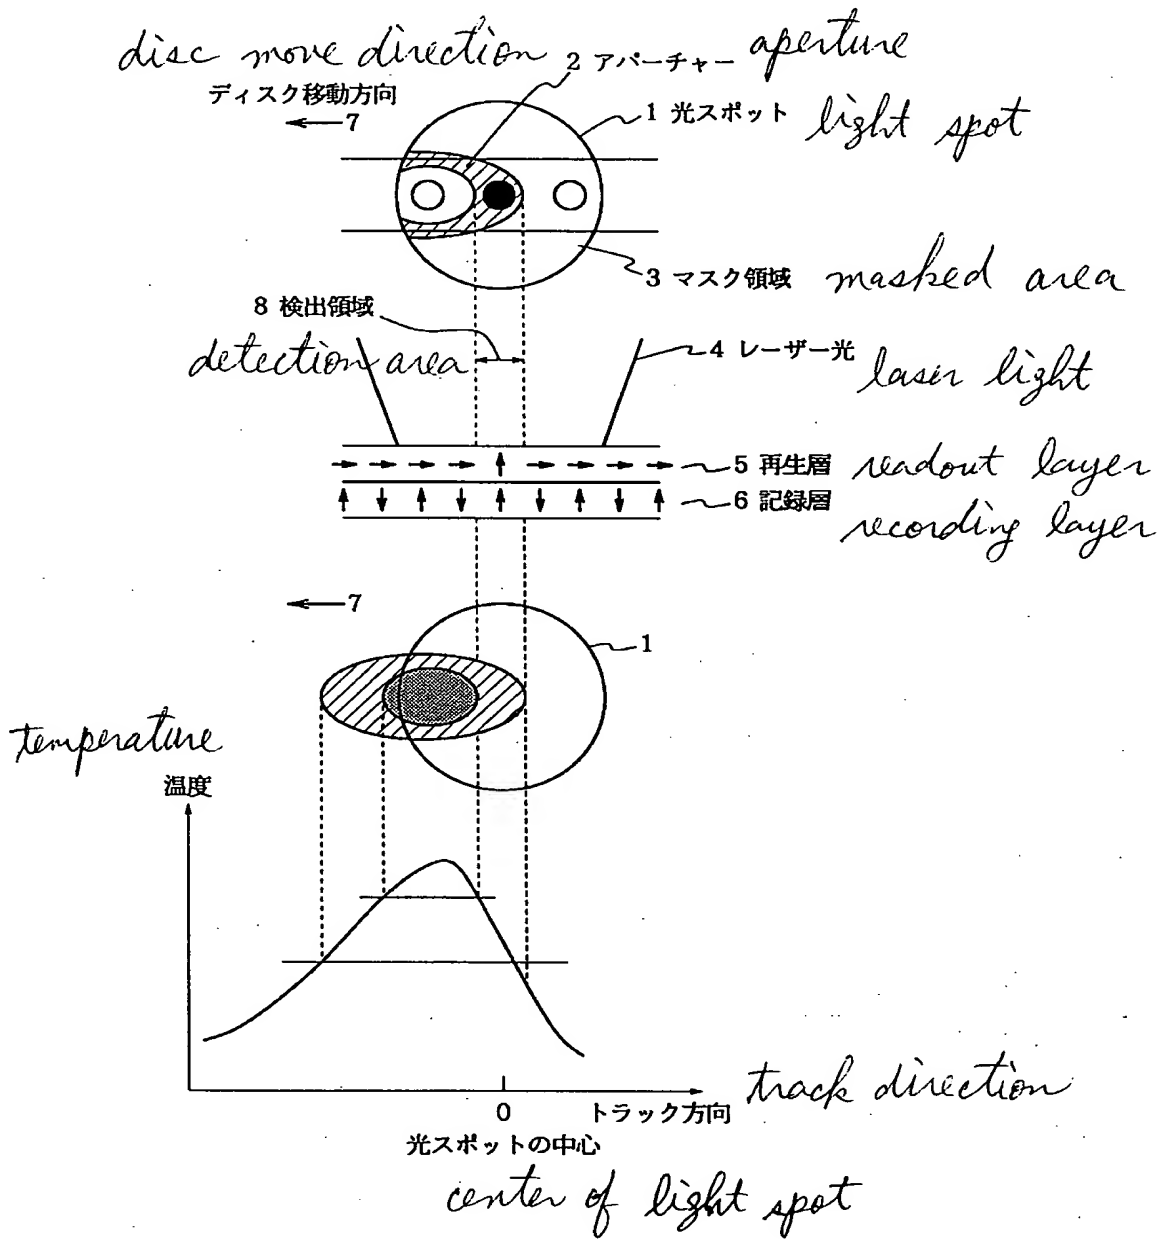 disc move direction
2 アパーチャー aperture
ディスク移動方向
7
1 光スポット light spot
3 マスク領域 masked area
8 検出領域
detection area
4 レーザー光 laser light
5 再生層 readout layer
6 記録層 recording layer
7
1
temperature
温度
0
トラック方向 track direction
光スポットの中心
center of light spot